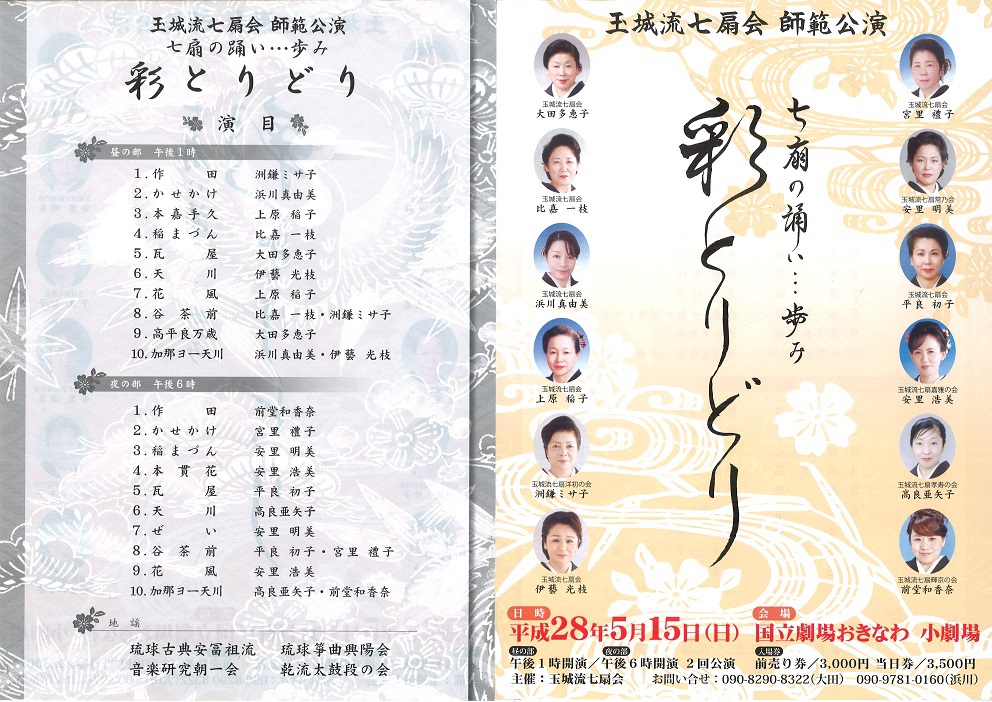 玉城流七扇会 師範公演
七扇の踊い…歩み
彩とりどり
演目
昼の部 午後1時
1.作田 洲鎌ミサ子
2.かせかけ 浜川真由美
3.本嘉手久 上原 稲子
4.稲まづん 比嘉 一枝
5.瓦屋 大田多恵子
6.天川 伊藝 光枝
7.花風 上原 稲子
8.谷茶前 比嘉 一枝・洲鎌ミサ子
9.高平良万歳 大田多恵子
10.加那ヨー天川 浜川真由美・伊藝 光枝
夜の部 午後6時
1.作田 前堂和香奈
2.かせかけ 宮里 禮子
3.稲まづん 安里 明美
4.本貫花 安里 浩美
5.瓦屋 平良 初子
6.天川 高良亜矢子
7.ぜい 安里 明美
8.谷茶前 平良 初子・宮里 禮子
9.花風 安里 浩美
10.加那ヨー天川 高良亜矢子・前堂和香奈
地謡
琉球古典安冨祖流 琉球箏曲興陽会
音楽研究朝一会 乾流太鼓段の会
玉城流七扇会 師範公演
七扇の踊い…歩み
彩とりどり
玉城流七扇会
大田多恵子
玉城流七扇会
比嘉 一枝
玉城流七扇会
浜川真由美
玉城流七扇会
上原 稲子
玉城流七扇洋初の会
洲鎌ミサ子
玉城流七扇会
伊藝 光枝
玉城流七扇会
宮里 禮子
玉城流七扇常乃会
安里 明美
玉城流七扇会
平良 初子
玉城流七扇嘉雅の会
安里 浩美
玉城流七扇孝寿の会
高良亜矢子
玉城流七扇輝京の会
前堂和香奈
日時
平成28年5月15日(日)
会場
国立劇場おきなわ 小劇場
昼の部 夜の部
午後1時開演/午後6時開演 2回公演
入場券
前売り券/3,000円 当日券/3,500円
主催:玉城流七扇会 お問い合せ:090-8290-8322(大田) 090-9781-0160(浜川)